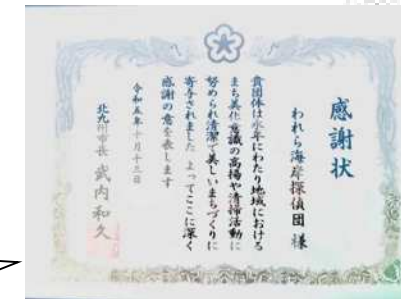 感謝状
われら海岸探偵団 様
貴団体は永年にわたり地域における
まち美化意識の高揚や清掃活動に
努められ清潔で美しいまちづくりに
寄与されました よってここに深く
感謝の意を表します
令和五年十月十三日
北九州市長 武内和久